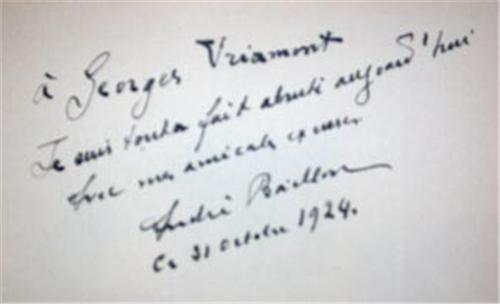 à Georges Vriamont
Je suis tout à fait abruti aujourd'hui
Avec mes amicales excuses
André Baillon
Ce 31 octobre 1924.